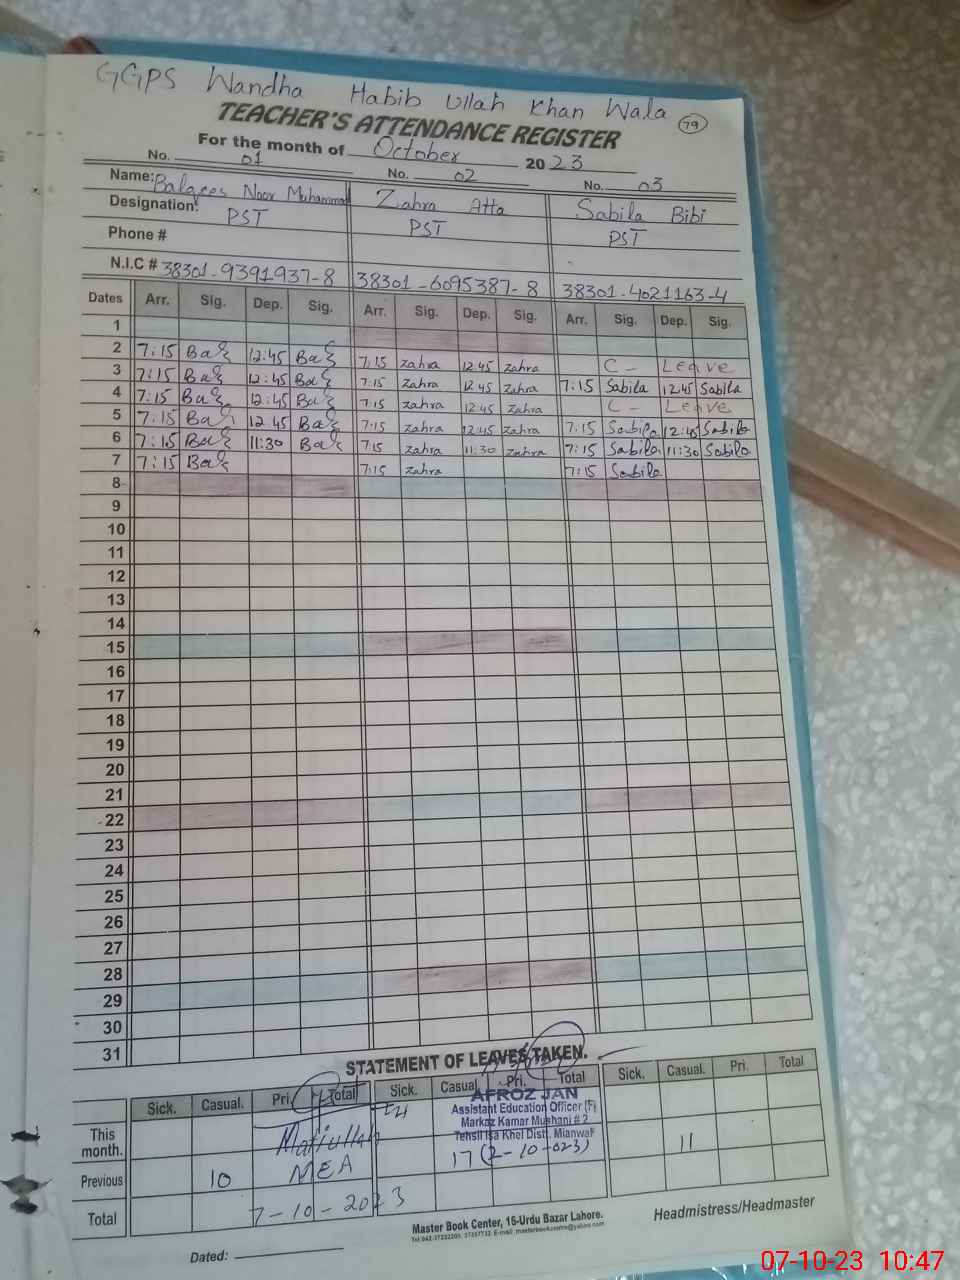 GGPS Wandha Habib Ullah Khan Wala
TEACHER'S ATTENDANCE REGISTER 79
For the month of October 2023
No. 01 No. 02 No. 03
Name: Balqees Noor Muhammad Zahra Atta Sabila Bibi
Designation: PST PST PST
Phone #
N.I.C # 38301-9391937-8 38301-6095387-8 38301-4021163-4
Dates Arr. Sig. Dep. Sig. Arr. Sig. Dep. Sig. Arr. Sig. Dep. Sig.
1
2 7:15 12:45 7:15 zahra 12:45 zahra C- Leave
3 7:15 12:45 7:15 zahra 12:45 zahra 7:15 Sabila 12:45 Sabila
4 7:15 12:45 7:15 zahra 12:45 zahra C- Leave
5 7:15 12:45 7:15 zahra 12:45 zahra 7:15 Sabila 12:45 Sabila
6 7:15 11:30 7:15 zahra 11:30 zahra 7:15 Sabila 11:30 Sabila
7 7:15 7:15 zahra 7:15 Sabila
8
9
10
11
12
13
14
15
16
17
18
19
20
21
22
23
24
25
26
27
28
29
30
31
STATEMENT OF LEAVES TAKEN.
Sick. Casual. Pri. Total Sick. Casual. Pri. Total Sick. Casual. Pri. Total
AFROZ JAN
Assistant Education Officer (F)
Markaz Kamar Mushani # 2
Tehsil Isa Khel Distt. Mianwali
This month. Matiullah 11
Previous 10 MEA 17 (2-10-023)
Total 7-10-2023
Master Book Center, 16-Urdu Bazar Lahore.
Headmistress/Headmaster
Dated:
07-10-23 10:47